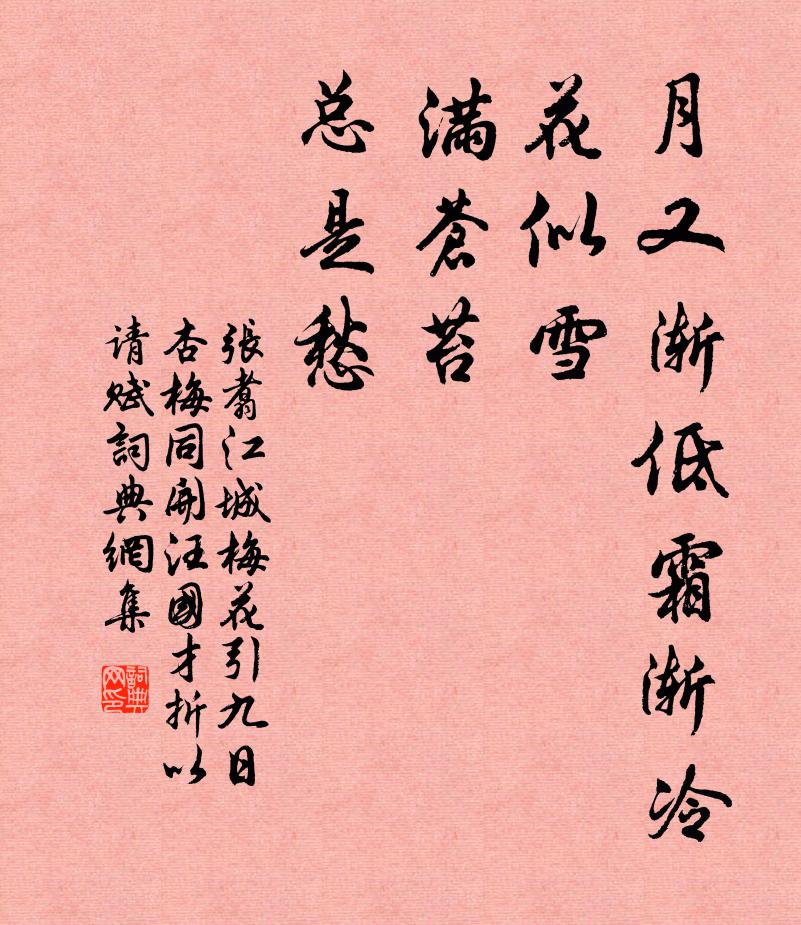 月又渐低霜渐冷
花似雪
满蒼苔
总是愁
張翥江城梅花引九日
杏梅同開汪國才折以
请赋詞典網集
詞典网印